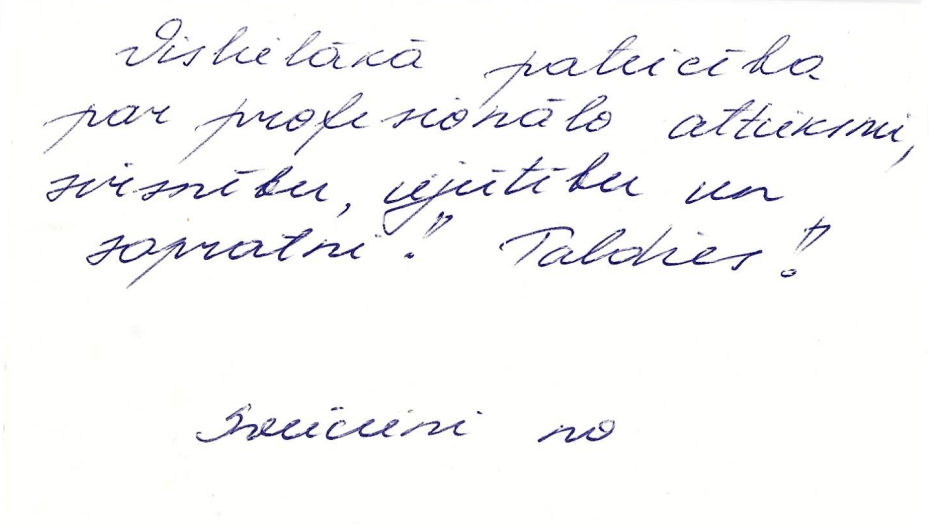 Vislielākā pateicība
par profesionālo attieksmi,
sirsnību, iejūtību un
sapratni!! Paldies!!
Sveicieni no